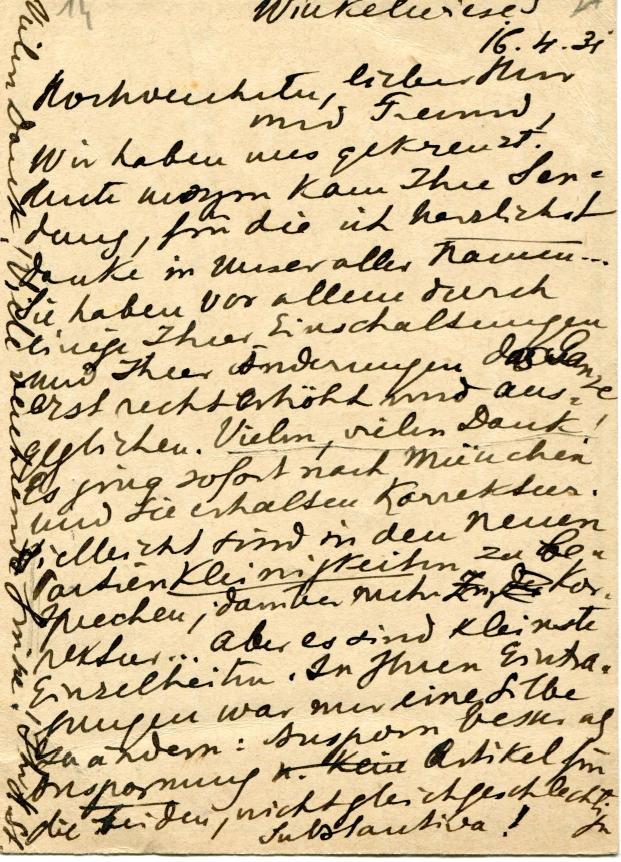 14
Winkelwiese 5
16. 4. 31
Hochverehrter, lieber Herr
und Freund,
Wir haben uns gekreuzt.
Heute morgen kam Ihre Sen-
dung, für die ich herzlichst
danke in unser aller Namen...
Sie haben vor allem durch
einige Ihrer Einschaltungen
und Ihrer Änderungen das Ganze
erst recht erhöht und aus-
geglichen. Vielen, vielen Dank!
Es ging sofort nach München
und Sie erhalten Korrektur.
Vielleicht sind in den neuen
Partien Kleinigkeiten zu be-
sprechen, darüber mehr Kor-
rektur... Aber es sind kleinste
Einzelheiten. In Ihren Eintra-
gungen war nur eine Silbe
zu ändern: Ansporn besser als
Anspornung u. kein Artikel für
die beiden, nicht gleichgeschlechtigen
Substantiva!
Vielen Dank! Viele verehrende Grüße.